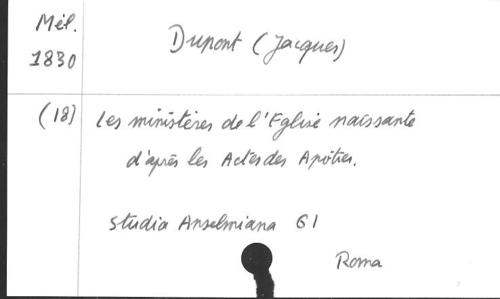 Mél.
1830
Dupont (Jacques)
(18) Les ministères de l'Eglise naissante
d'après les Actes des Apôtres.
Studia Anselmiana 61
Roma